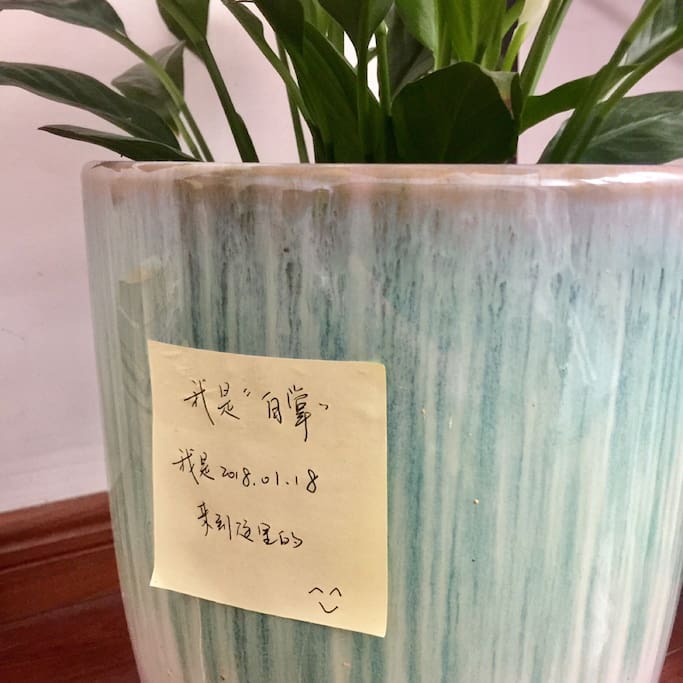 我是“白掌”
我是2018.01.18
来到这里的